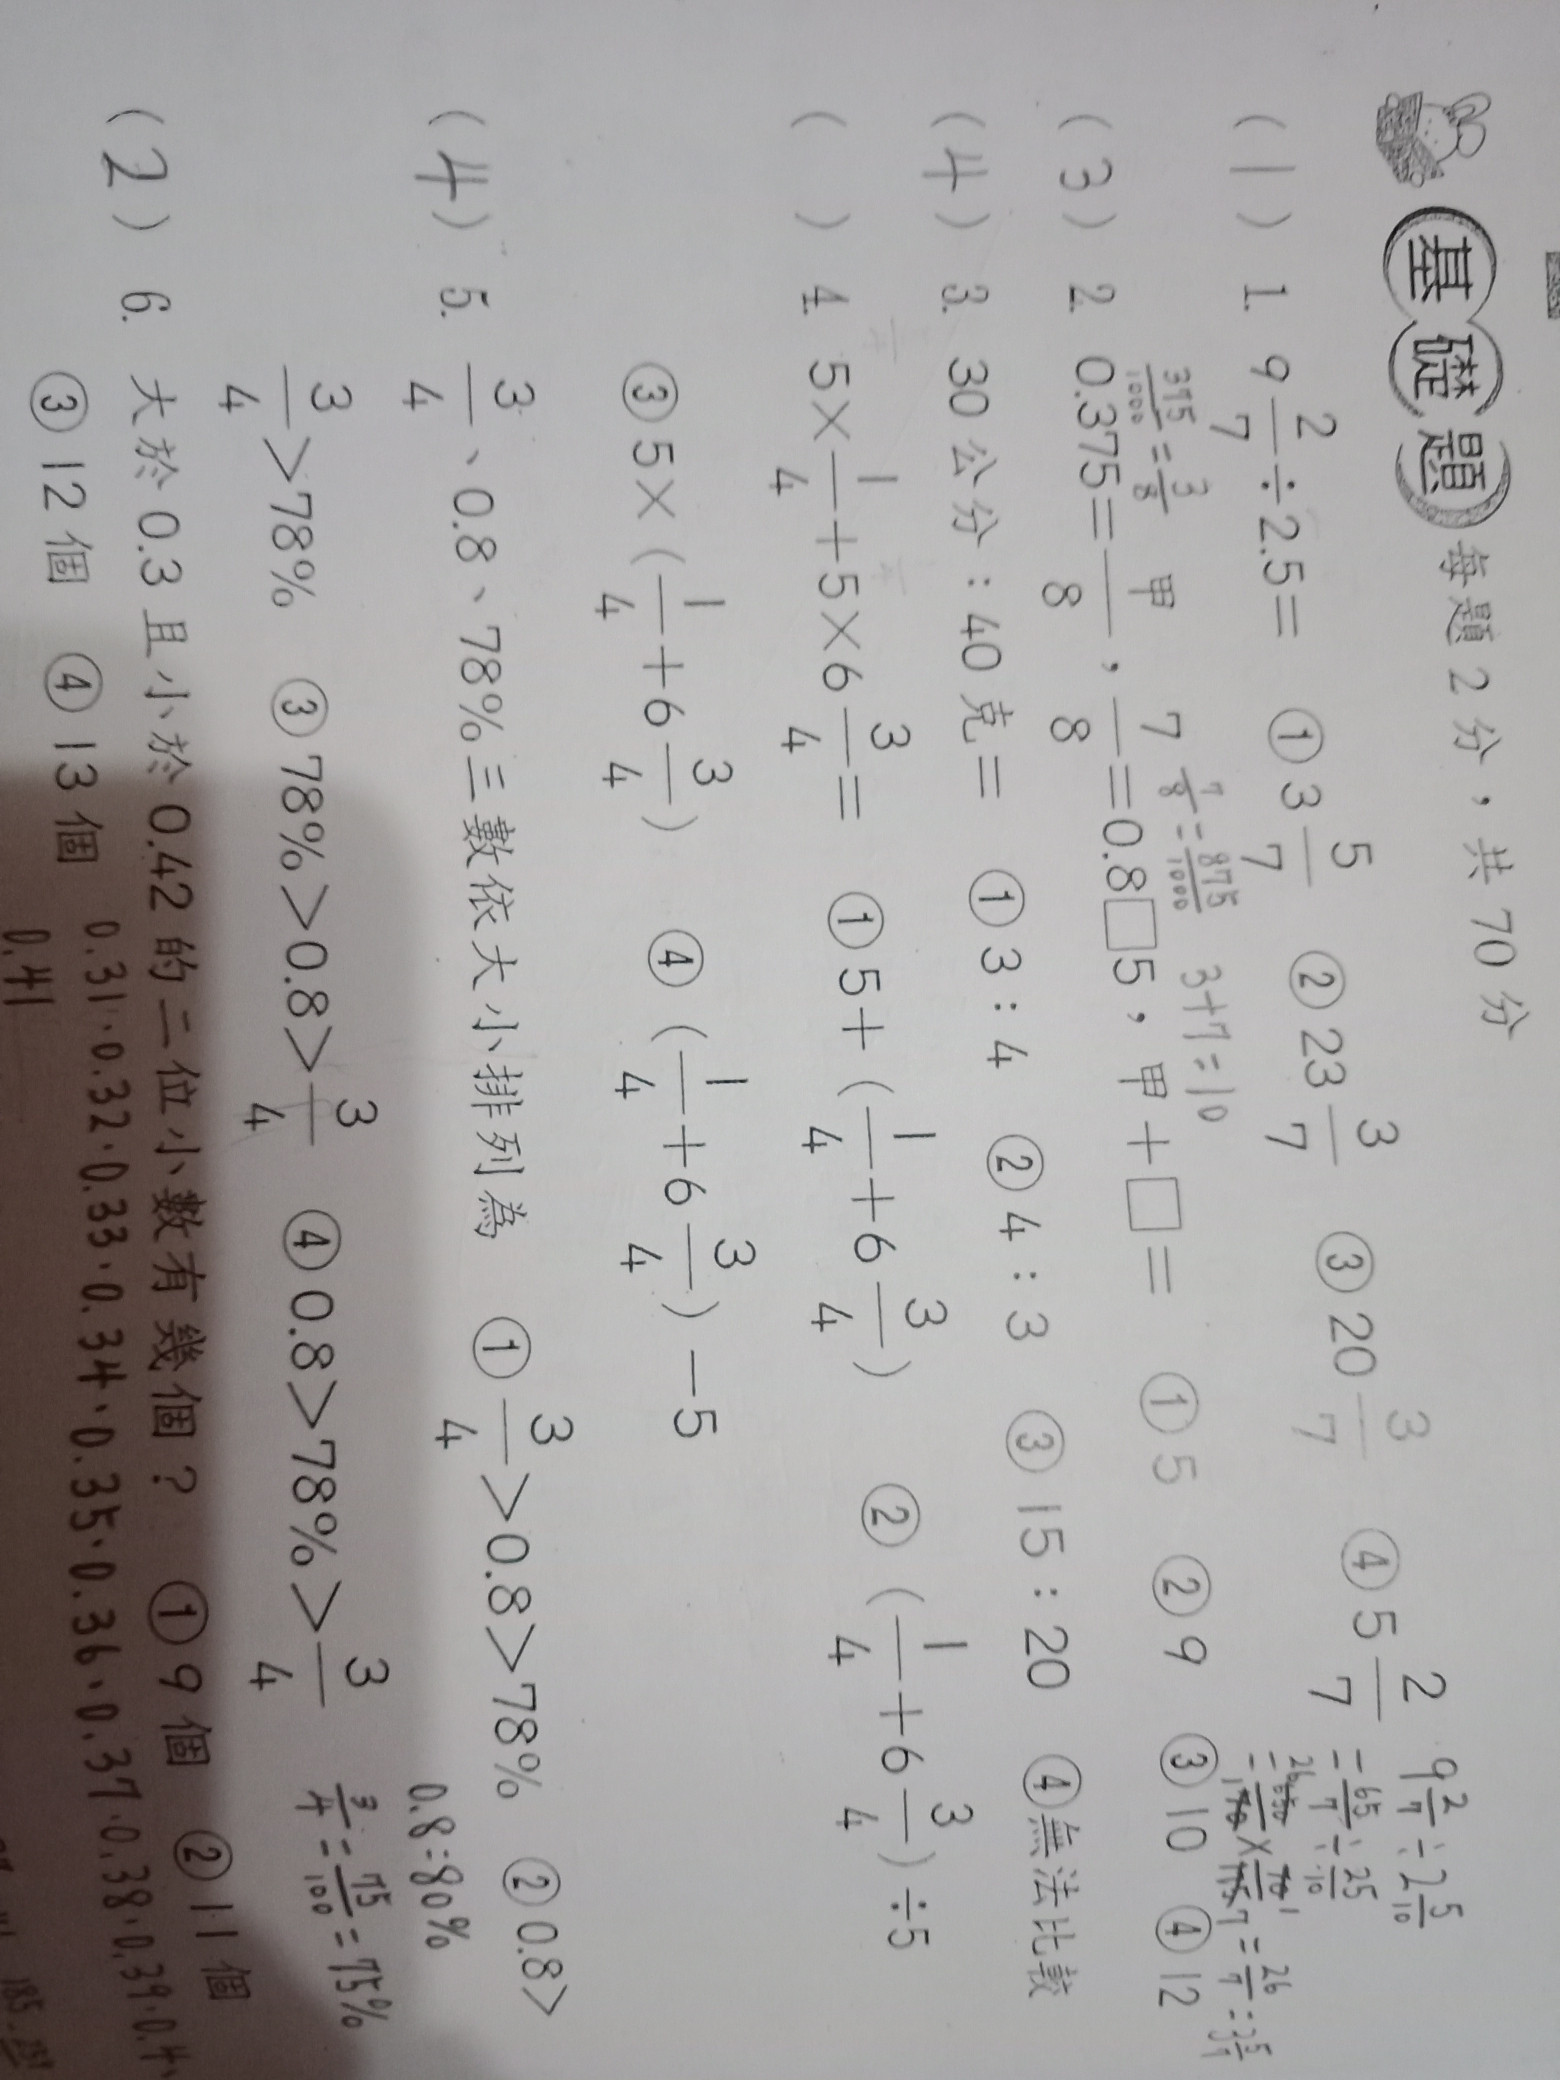 基礎題 每題2分，共70分
(1) 1. 9 2/7÷2.5= ①3 5/7 ②23 3/7 ③20 3/7 ④5 2/7
9 2/7÷2 5/10
=65/7÷25/10
375/1000=3/8 7/8=875/1000 3+7=10
(3) 2. 0.375=甲/8，7/8=0.8□5，甲+□= ①5 ②9 ③10 ④12
(4) 3. 30公分：40克= ①3：4 ②4：3 ③15：20 ④無法比較
( ) 4. 5×1/4+5×6 3/4= ①5+(1/4+6 3/4) ②(1/4+6 3/4)÷5
③5×(1/4+6 3/4) ④(1/4+6 3/4)-5
(4) 5. 3/4、0.8、78%三數依大小排列為 ①3/4>0.8>78% ②0.8>
3/4>78% ③78%>0.8>3/4 ④0.8>78%>3/4
0.8=80%
3/4=75/100=75%
(2) 6. 大於0.3且小於0.42的二位小數有幾個？ ①9個 ②11個
③12個 ④13個
0.31、0.32、0.33、0.34、0.35、0.36、0.37、0.38、0.39、0.4、
0.41